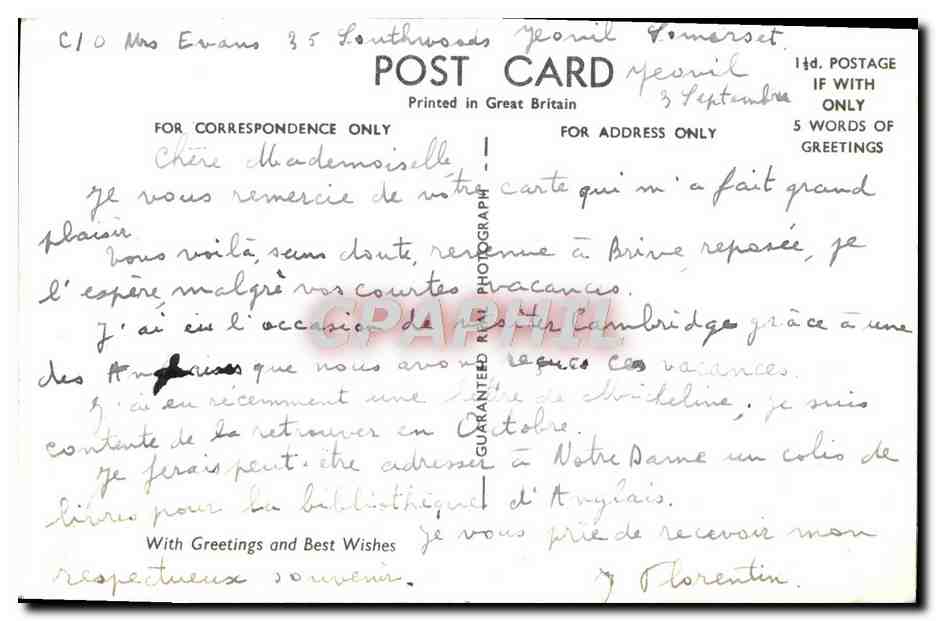 C/O Mrs Evans 35 Southwoods Yeovil Somerset.
POST CARD
Yeovil
3 Septembre
1½d. POSTAGE
IF WITH
ONLY
5 WORDS OF
GREETINGS
Printed in Great Britain
FOR CORRESPONDENCE ONLY
FOR ADDRESS ONLY
Chère Mademoiselle,
Je vous remercie de vôtre carte qui m'a fait grand
plaisir.
Vous voilà, sans doute, revenue à Brive, reposée, je
l'espère, malgré vos courtes vacances.
J'ai eu l'occasion de visiter Cambridge grâce à une
des Anglaises que nous avons reçues ces vacances.
J'ai eu récemment une lettre de Micheline, je suis
contente de la retrouver en Octobre.
Je ferais peut-être adresser à Notre Dame un colis de
livres pour la bibliothèque d'Anglais.
With Greetings and Best Wishes
Je vous prie de recevoir mon
respectueux souvenir.
J Florentin.
GUARANTEED REAL PHOTOGRAPH
CPAPHIL